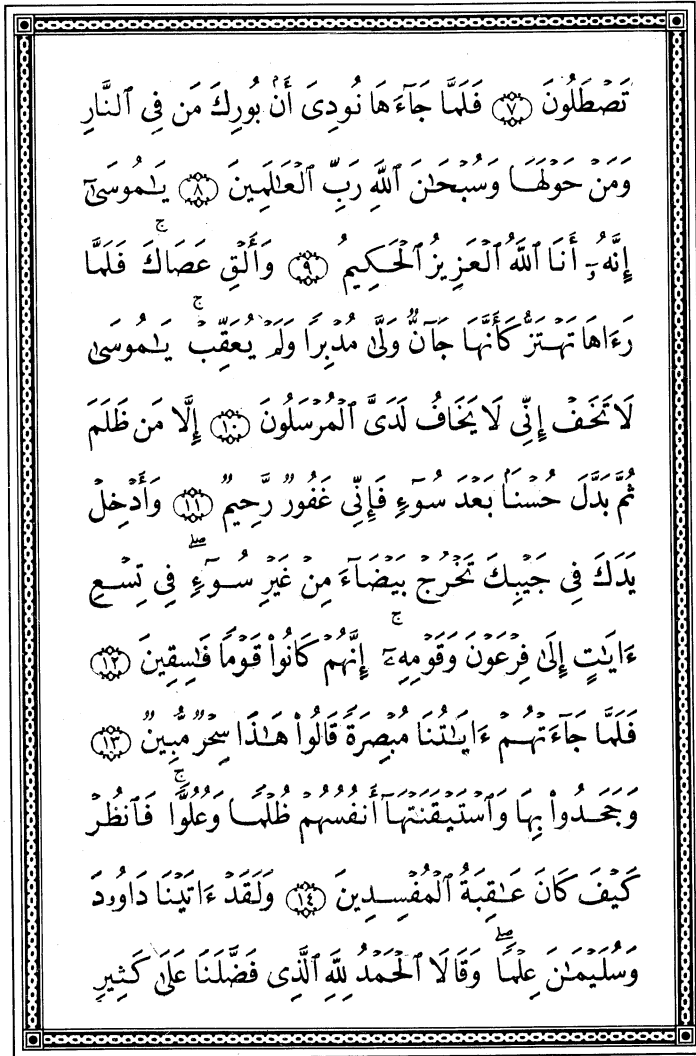 تَصْطَلُونَ ﴿٧﴾ فَلَمَّا جَآءَهَا نُودِىَ أَنۢ بُورِكَ مَن فِى ٱلنَّارِ
وَمَنْ حَوْلَهَا وَسُبْحَـٰنَ ٱللَّهِ رَبِّ ٱلْعَـٰلَمِينَ ﴿٨﴾ يَـٰمُوسَىٰٓ
إِنَّهُۥٓ أَنَا ٱللَّهُ ٱلْعَزِيزُ ٱلْحَكِيمُ ﴿٩﴾ وَأَلْقِ عَصَاكَ ۚ فَلَمَّا
رَءَاهَا تَهْتَزُّ كَأَنَّهَا جَآنٌّ وَلَّىٰ مُدْبِرًا وَلَمْ يُعَقِّبْ ۚ يَـٰمُوسَىٰ
لَا تَخَفْ إِنِّى لَا يَخَافُ لَدَىَّ ٱلْمُرْسَلُونَ ﴿١٠﴾ إِلَّا مَن ظَلَمَ
ثُمَّ بَدَّلَ حُسْنَۢا بَعْدَ سُوٓءٍ فَإِنِّى غَفُورٌ رَّحِيمٌ ﴿١١﴾ وَأَدْخِلْ
يَدَكَ فِى جَيْبِكَ تَخْرُجْ بَيْضَآءَ مِنْ غَيْرِ سُوٓءٍ ۖ فِى تِسْعِ
ءَايَـٰتٍ إِلَىٰ فِرْعَوْنَ وَقَوْمِهِۦٓ ۚ إِنَّهُمْ كَانُوا۟ قَوْمًا فَـٰسِقِينَ ﴿١٢﴾
فَلَمَّا جَآءَتْهُمْ ءَايَـٰتُنَا مُبْصِرَةً قَالُوا۟ هَـٰذَا سِحْرٌ مُّبِينٌ ﴿١٣﴾
وَجَحَدُوا۟ بِهَا وَٱسْتَيْقَنَتْهَآ أَنفُسُهُمْ ظُلْمًا وَعُلُوًّا ۚ فَٱنظُرْ
كَيْفَ كَانَ عَـٰقِبَةُ ٱلْمُفْسِدِينَ ﴿١٤﴾ وَلَقَدْ ءَاتَيْنَا دَاوُۥدَ
وَسُلَيْمَـٰنَ عِلْمًا ۖ وَقَالَا ٱلْحَمْدُ لِلَّهِ ٱلَّذِى فَضَّلَنَا عَلَىٰ كَثِيرٍ